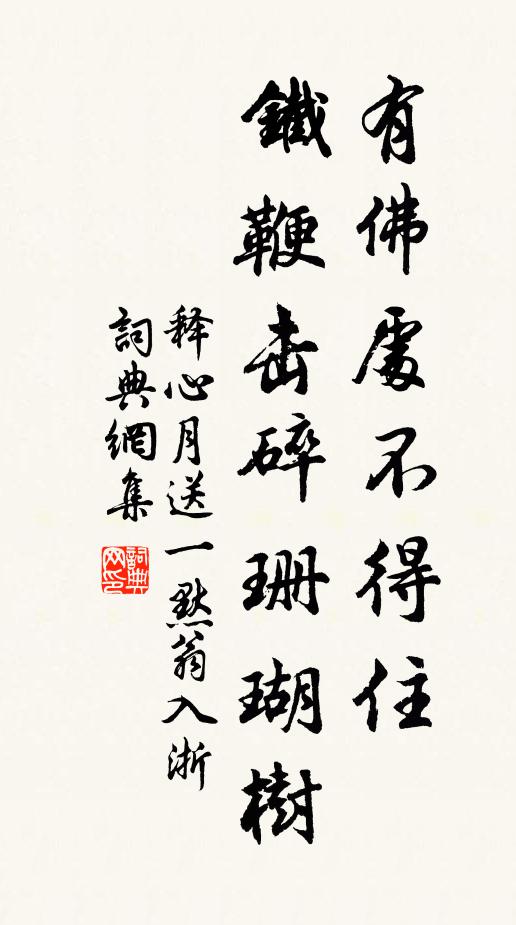 有佛處不得住
鐵鞭击碎珊瑚樹
释心月送一默翁入浙
詞典網集
詞典网印